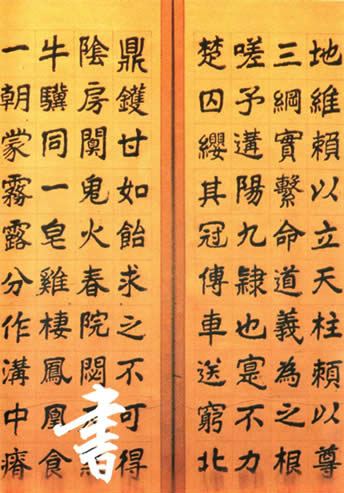 地維賴以立天柱賴以尊
三綱實繫命道義為之根
嗟予遘陽九隸也寔不力
楚囚纓其冠傳車送窮北
鼎鑊甘如飴求之不可得
隂房闃鬼火春院閟
牛驥同一皂雞棲鳳凰食
一朝蒙霧露分作溝中瘠
書